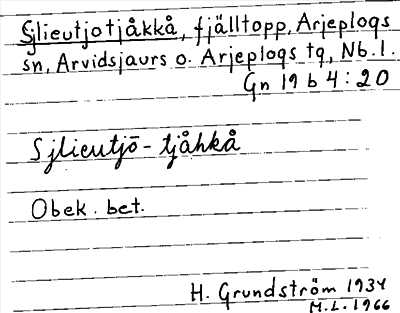 Sjlieutjotjåkkå, fjälltopp, Arjeplogs
sn, Arvidsjaurs o. Arjeplogs tg, Nb. l.
Gn 19 b 4:20
Sjlieutjō - tjåhkå
Obek. bet.
H. Grundström 1934
M.L. 1966